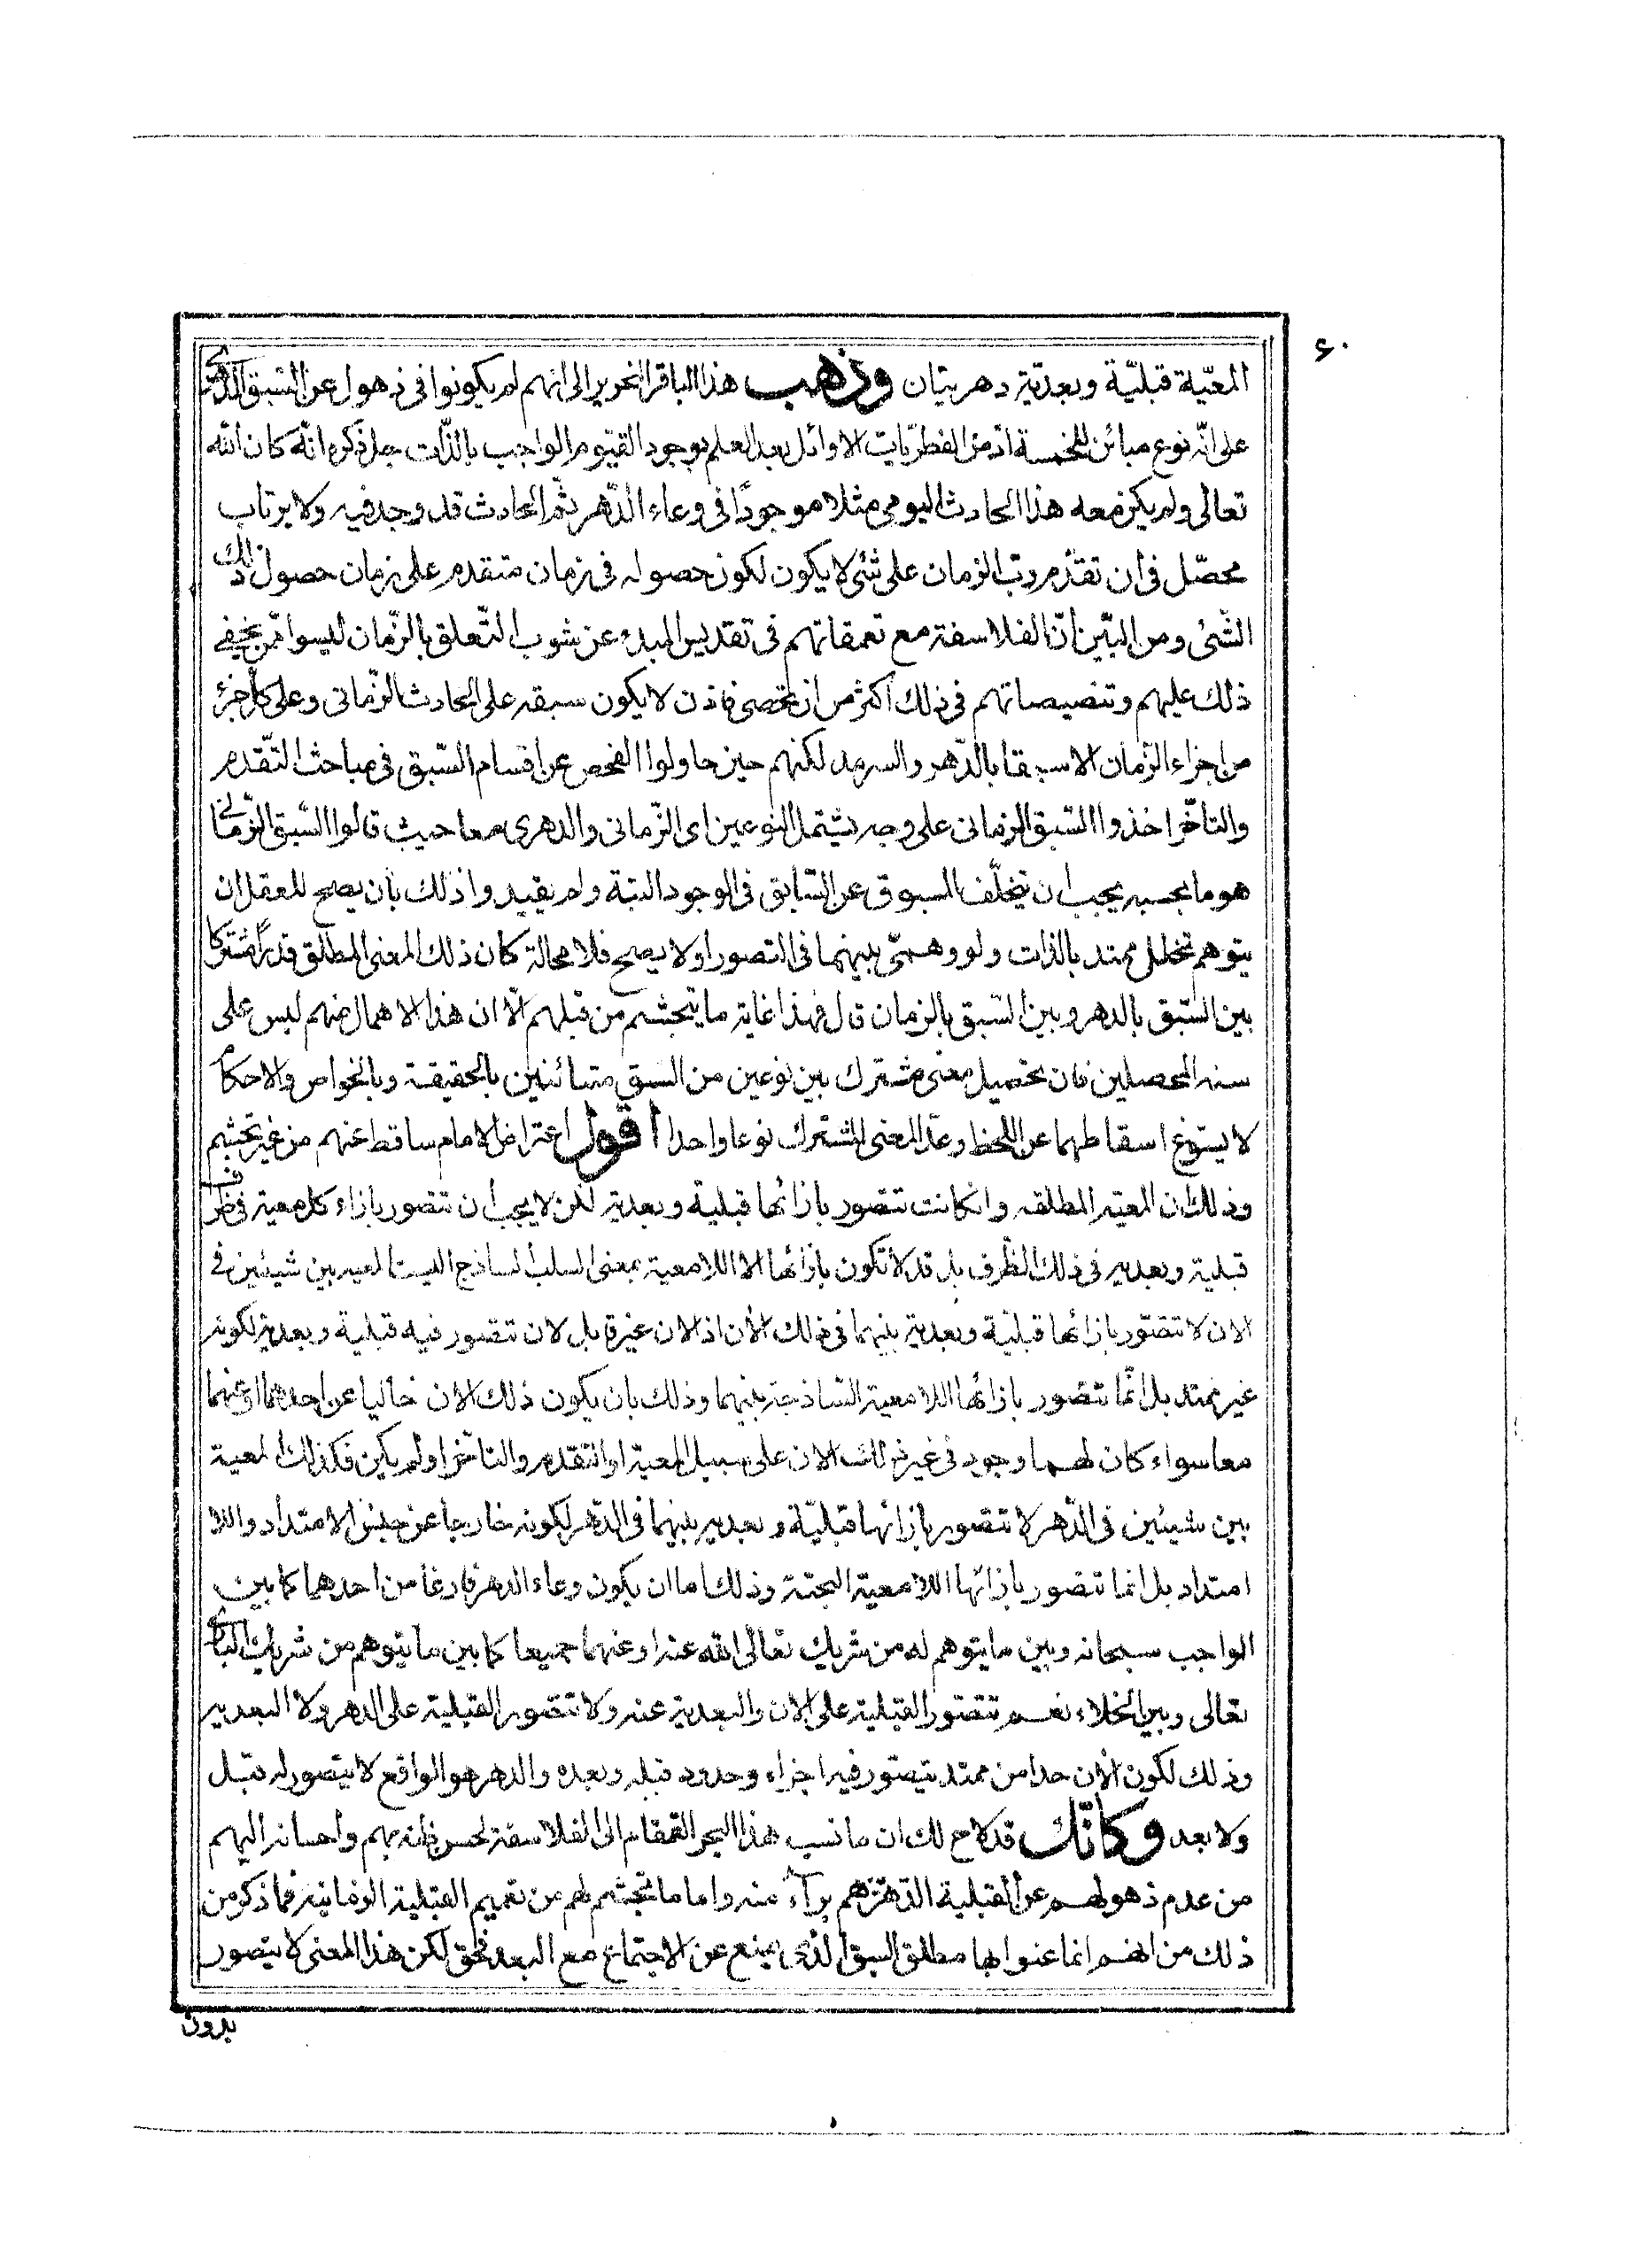 ۶۰
المعيّة قبليّة وبعديّة دهريتان وذهب هذا الباقر النحرير الى انهم لم يكونوا فى ذهول عن السّبق الدهرى
على انّه نوع مبائن للخمسة اذ من الفطريّات الاوائل بعد العلم بوجود القيّوم الواجب بالذّات جل ذكره انّه كان الله
تعالى ولم يكن معه هذا الحادث اليومى مثلا موجودًا فى وعاء الدّهر ثمّ الحادث قد وجد فيه ولا يرتاب
محصّل فى ان تقدّم ربّ الزمان على شئ لا يكون لكون حصوله فى زمان متقدم على زمان حصول ذلك
الشّئ ومن البيّن انّ الفلاسفة مع تعمقاتهم فى تقديس المبدء عن شوب التّعلق بالزّمان ليسوا ممّن يخفى
ذلك عليهم وتنصيصاتهم فى ذلك اكثر من ان تحصى فاذن لا يكون سبقه على الحادث الزّمانى وعلى كل جزء
من اجزاء الزّمان الا سبقا بالدّهر والسرمد لكنهم حين حاولوا الفحص عن اقسام السّبق فى مباحث التّقدم
والتأخّر اخذوا السّبق الزمانى على وجه يشتمل النوعين اى الزّمانى والدهرى معا حيث قالوا السّبق الزّمانى
هو ما بحسبه يجب ان يتخلّف المسبوق عن السّابق فى الوجود البتة ولم يقيدوا ذلك بان يصح للعقل ان
يتوهم تخلل ممتد بالذات ولو وهمىّ بينهما فى التصور او لا يصح فلا محالة كان ذلك المعنى المطلق قدرًا مشتركا
بين السّبق بالدهر وبين السّبق بالزمان قال فهذا غاية ما يتجشم من قبلهم الّا ان هذا الاهمال منهم ليس على
سنه المحصلين فان تحصيل معنى مشترك بين نوعين من السبق متبائنين بالحقيقة وبالخواص والاحكام
لا يسوّغ اسقاطهما عن اللحظ وعدّ المعنى المشترك نوعا واحدا اقول اعتراض الامام ساقط عنهم من غير تجشم
وذلك ان المعيّه المطلقه وان كانت تتصور بازائها قبلية وبعدية لكن لا يجب ان تتصور بازاء كل معية فى ظرف
قبلية وبعديه فى ذلك الظّرف بل قد لا تكون بازائها الا اللامعية بمعنى السلب الساذج اليست المعيه بين شيئين فى
الان لا تتصّور بازائها قبليّة وبعدية بينهما فى ذلك الان اذ الان غير قابل لان تتصور فيه قبلية وبعدية لكونه
غير ممتد بل انّما تتصور بازائها اللامعية السّاذجة بينهما وذلك بان يكون ذلك الان خاليا عن احدهما او عنهما
معا سواء كان لهما وجود فى غير ذلك الان على سبيل المعية او التقدم والتاخر او لم يكن فكذلك المعية
بين شيئين فى الدّهر لا تتصور بازائها قبليّة وبعديه بينهما فى الدّهر لكونه خارجا عن جنس الامتداد واللا
امتداد بل انما تتصور بازائها اللامعية البحتة وذلك اما ان يكون وعاء الدهر فارغا من احدهما كما بين
الواجب سبحانه وبين ما يتوهم له من شريك تعالى الله عنه او عنهما جميعا كما بين ما يتوهم من شريك البارى
تعالى وبين الخلاء نعم تتصّور القبلية على الان والبعدية عنه ولا تتصور القبلية على الدهر ولا البعديه
وذلك لكون الان حدا من ممتد يتصّور فيه اجزاء وحدود قبله وبعده والدهر هو الواقع لا يتصور له قبل
ولا بعد وكانّك قد لاح لك ان ما نسب هذا البحر القمقام الى الفلاسفة لحسن ظنه بهم واحسانه اليهم
من عدم ذهولهم عن القبلية الدّهريّة هم براء منه واما ما تجشم لهم من تعميم القبلية الزمانيه فما ذكر من
ذلك من انهم انما عنوا بها مطلق السبق الذى يمنع عن الاجتماع مع البعد فحق لكن هذا المعنى لا يتصور
بدون